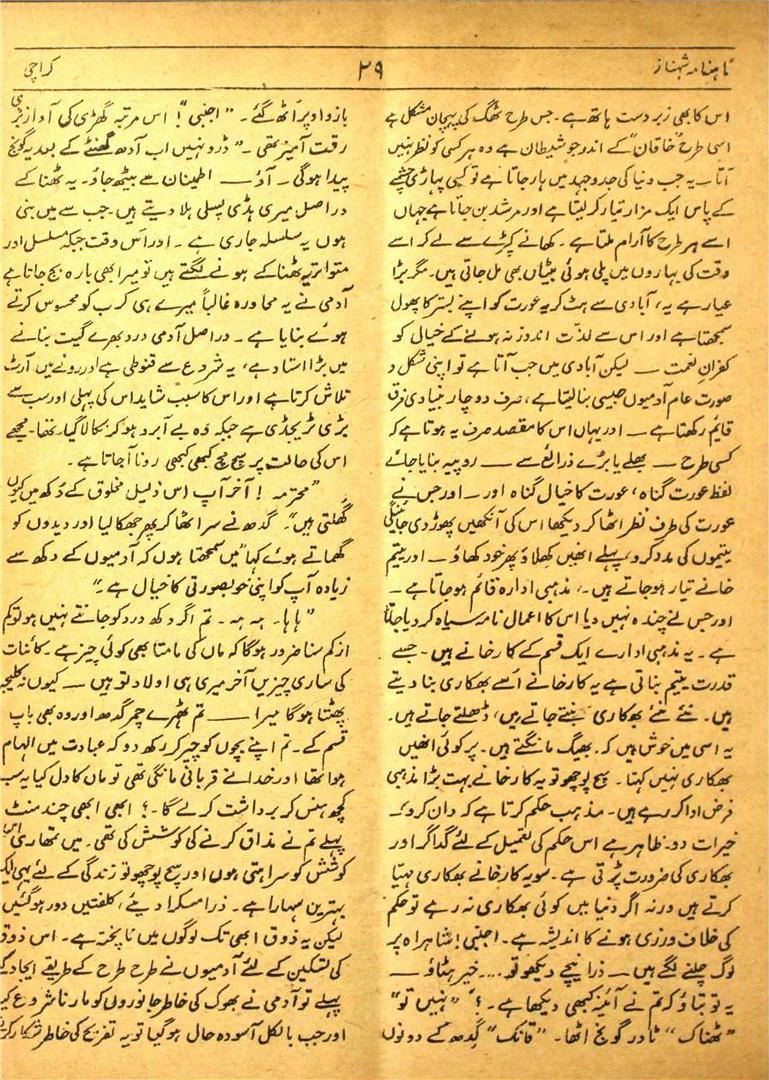 ماہنامہ شہناز
۲۹
کراچی
اس کا بھی زبردست ہاتھ ہے۔ جس طرح ٹھگ کی پہچان مشکل ہے
اسی طرح "خاقان" کے اندر جو شیطان ہے وہ ہر کسی کو نظر نہیں
آتا۔ یہ جب دنیا کی جدوجہد میں ہار جاتا ہے تو کسی پہاڑی چشمے
کے پاس ایک مزار تیار کر لیتا ہے اور مرشد بن جاتا ہے جہاں
اسے ہر طرح کا آرام ملتا ہے۔ کھانے کپڑے سے لے کر اسے
وقت کی بہاروں میں پلی ہوئی بیٹیاں بھی مل جاتی ہیں۔ مگر بڑا
عیار ہے یہ، آبادی سے ہٹ کر یہ عورت کو اپنے بستر کا پھول
سمجھتا ہے اور اس سے لذت اندوز نہ ہونے کے خیال کو
کفرانِ نعمت — لیکن آبادی میں جب آتا ہے تو اپنی شکل و
صورت عام آدمیوں جیسی بنا لیتا ہے، صرف دو چار بنیادی فرق
قائم رکھتا ہے — اور یہاں اس کا مقصد صرف یہ ہوتا ہے کہ
کسی طرح — بھلے یا برے ذرائع سے — روپیہ بنایا جائے
لفظ عورت گناہ، عورت کا خیال گناہ اور — اور جس نے
عورت کی طرف نظر اٹھا کر دیکھا اس کی آنکھیں پھوڑ دی جائینگی
یتیموں کی مدد کرو، پہلے انھیں کھلاؤ پھر خود کھاؤ — اور یتیم
خانے تیار ہو جاتے ہیں۔، مذہبی ادارہ قائم ہو جاتا ہے۔
اور جس نے چندہ نہیں دیا اس کا اعمال نامہ سیاہ کر دیا جاتا
ہے۔ یہ مذہبی ادارے ایک قسم کے کارخانے ہیں۔ جسے
قدرت یتیم بناتی ہے یہ کارخانے اسے بھکاری بنا دیتے
ہیں۔ نئے نئے بھکاری بنتے جاتے ہیں، ڈھلتے جاتے ہیں۔
یہ اسی میں خوش ہیں کہ بھیک مانگتے ہیں۔ پر کوئی انھیں
بھکاری نہیں کہتا۔ سچ پوچھو تو یہ کارخانے بہت بڑا مذہبی
فرض ادا کر رہے ہیں۔ مذہب حکم کرتا ہے کہ دان کرو۔
خیرات دو۔ ظاہر ہے اس حکم کی تعمیل کے لئے گداگر اور
بھکاری کی ضرورت پڑتی ہے۔ سو یہ کارخانے بھکاری مہیّا
کرتے ہیں ورنہ اگر دنیا میں کوئی بھکاری نہ رہے تو حکم
کی خلاف ورزی ہونے کا اندیشہ ہے۔ اجنبی! شاہراہ پر
لوگ چلنے لگے ہیں — ذرا نیچے دیکھو تو.... خیر ہٹاؤ —
یہ تو بتاؤ کہ تم نے آئینہ کبھی دیکھا ہے۔؟" "نہیں تو"
"ٹھناک" ٹاور گونج اٹھا۔ "قانک" گدھ کے دونوں
بازو اوپر اٹھ گئے۔ "اجنبی"! اس مرتبہ گھڑی کی آواز بڑی
رقت آمیز تھی۔ "ڈرو نہیں اب آدھ گھنٹے کے بعد یہ گونج
پیدا ہوگی۔ آؤ — اطمینان سے بیٹھ جاؤ۔ یہ ٹھنا کے
دراصل میری ہڈی پسلی ہلا دیتے ہیں۔ جب سے میں بنی
ہوں یہ سلسلہ جاری ہے۔ اور اس وقت جبکہ مسلسل اور
متواتر یہ ٹھنا کے ہونے لگتے ہیں تو میرا بھی بارہ بج جاتا ہے
آدمی نے یہ محاورہ غالباً میرے ہی کرب کو محسوس کرتے
ہوئے بنایا ہے۔ دراصل آدمی درد بھرے گیت بنانے
میں بڑا استاد ہے، یہ شروع سے قنوطی ہے اور رونے میں آرٹ
تلاش کرتا ہے اور اس کا سبب شاید اس کی پہلی اور سب سے
بڑی ٹریجڈی ہے جبکہ وہ بے آبرو ہو کر نکالا گیا۔ تھا۔ مجھے
اس کی حالت پر سچ مچ کبھی کبھی رونا آ جاتا ہے۔
"محترمہ! آخر آپ اس ذلیل مخلوق کے دُکھ میں کیوں
گھلتی ہیں"۔ گدھ نے سر اٹھا کر پھر جھکا لیا اور دیدوں کو
گھماتے ہوئے کہا "میں سمجھتا ہوں کہ آدمیوں کے دکھ سے
زیادہ آپ کو اپنی خوبصورتی کا خیال ہے۔"
"ہا ہا۔ ہہ ہہ۔ تم اگر دکھ درد کو جانتے نہیں ہو تو کم
از کم سنا ضرور ہوگا کہ ماں کی مامتا بھی کوئی چیز ہے۔ کائنات
کی ساری چیزیں آخر میری ہی اولاد تو ہیں — کیوں نہ کلیجہ
پھٹتا ہوگا میرا — تم ٹھہرے چمر گدھ اور وہ بھی باپ
قسم کے۔ تم اپنے بچوں کو چیر کر رکھ دو کہ عبادت میں الہام
ہوا تھا اور خدا نے قربانی مانگی تھی تو ماں کا دل کیا یہ سب
کچھ ہنس کر برداشت کر لے گا۔؟ ابھی ابھی چند منٹ
پہلے تم نے مذاق کرنے کی کوشش کی تھی۔ میں تمھاری اس
کوشش کو سراہتی ہوں اور سچ پوچھو تو زندگی کے لئے یہی ایک
بہترین سہارا ہے۔ ذرا مسکرا دیئے، کلفتیں دور ہو گئیں
لیکن یہ ذوق ابھی تک لوگوں میں ناپختہ ہے۔ اس ذوق
کی تسکین کے لئے آدمیوں نے طرح طرح کے طریقے ایجاد کئے
پہلے تو آدمی نے بھوک کی خاطر جانوروں کو مارنا شروع کیا
اور جب بالکل آسودہ حال ہو گیا تو یہ تفریح کی خاطر شکار کرنے